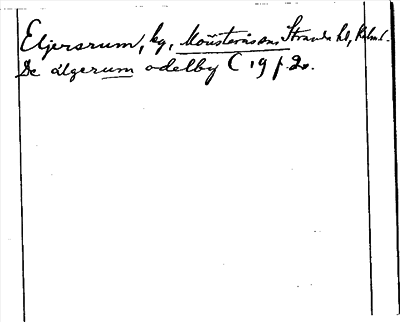 Eljersrum, kg, Mönsterås sns Stranda hd, Kalm l.
De älgerum odelby C 19 f. 20.